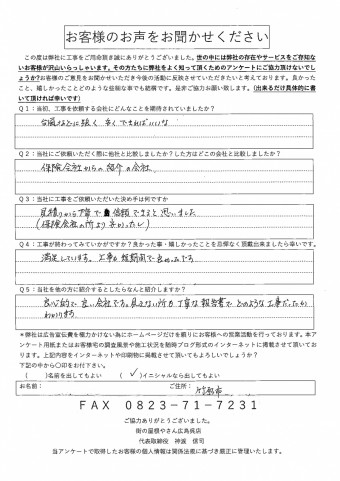 お客様のお声をお聞かせください
この度は弊社に工事をご用命頂き誠にありがとうございました。世の中には弊社の存在やサービスをご存知な
いお客様が沢山いらっしゃいます。その方たちに弊社をよく知って頂くためのアンケートにご協力頂けないでし
ょうか？お客様のご意見をお聞かせいただき今後の活動に反映させていただきたいと考えております。良かった
こと、嬉しかったことどのような些細な事でも結構です。是非ご協力お願い致します。（出来るだけ具体的に書
いて頂ければ幸いです）
Q1：当初、工事を依頼する会社にどんなことを期待されていましたか？
台風などに強く 安くできればいいな
Q2：当社にご依頼いただく際に他社と比較しましたか？した方はどこの会社と比較しましたか？
保険会社からの紹介の会社
Q3：当社に工事をご依頼いただいた決め手は何ですか
見積りから丁寧で 信頼できると思いました
（保険会社の所より安かったし）
Q4：工事が終わってみていかがですか？良かった事・嬉しかったことを忌憚なく頂戴出来ましたら幸いです。
満足しています。工事も短期間で良かったです
Q5：当社を他の方に紹介するとしたらなんと紹介しますか？
良い会社です。見えない所も丁寧な報告書でどのような工事だったか
わかります
＊弊社は広告宣伝費を極力かけない為にホームページだけを頼りにお客様への営業活動を行っております。本ア
ンケート用紙またはお客様宅の調査風景や施工状況を随時ブログ形式のインターネットに掲載させて頂いてお
ります。上記内容をインターネットや印刷物に掲載させて頂いてもよろしいでしょうか？
下記の中から〇印をお付下さい。
（　）名前を出してもよい　（✓）イニシャルなら出してもよい
お名前：　ご住所：竹原市
FAX 0823-71-7231
ご協力ありがとうございました。
街の屋根やさん広島呉店
代表取締役 神園 信司
当アンケートで取得したお客様の個人情報は関係法規に基づき厳正に管理いたします。